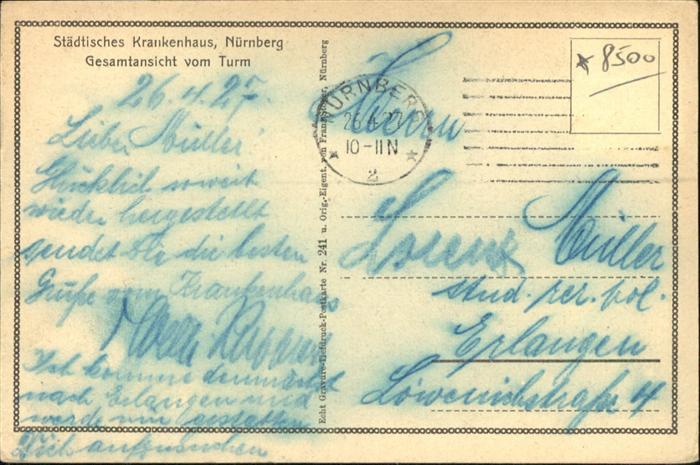 Städtisches Krankenhaus, Nürnberg
Gesamtansicht vom Turm
26.4.27.
Lieber Müller!
Glücklich soweit
wieder hergestellt
sendet Dir die besten
Grüße vom Krankenhaus
Ich komme demnächst
nach Erlangen und
werde mir gestatten
Dich aufzusuchen
Echt Gravure-Tiefdruck-Postkarte Nr. 241 u. Orig.-Eigent. von Nürnberg
NÜRNBERG
26.4.27
10-11 N
2
* 8500
Herrn
Lorenz Müller
stud. rer. pol.
Erlangen
Löwenichstraße 4